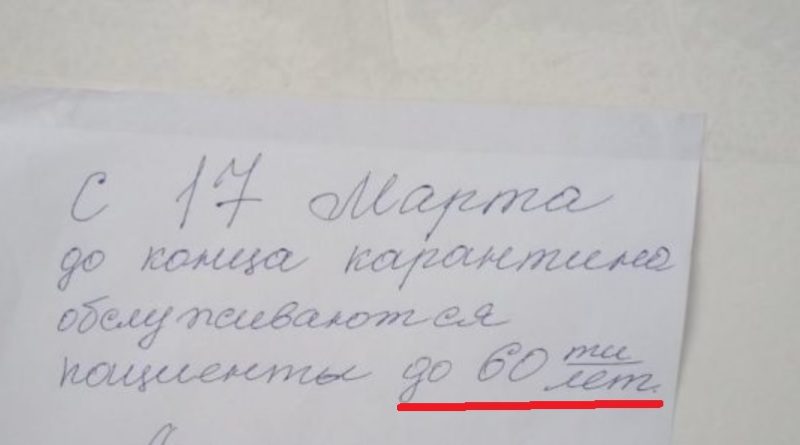 С 17 Марта
до конца карантина
обслуживаются
пациенты до 60 ти лет.